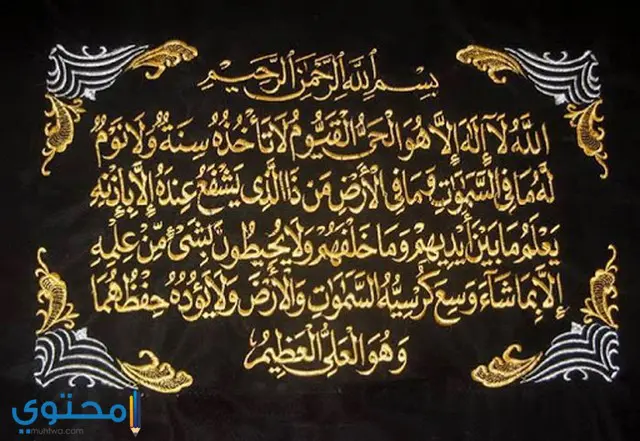 بِسْمِ اللهِ الرَّحْمٰنِ الرَّحِيْمِ
اَللهُ لَآ إِلٰهَ إِلَّا هُوَ الْحَيُّ الْقَيُّوْمُ لَا تَأْخُذُهُ سِنَةٌ وَلَا نَوْمٌ
لَهُ مَا فِي السَّمٰوَاتِ وَمَا فِي الْأَرْضِ مَنْ ذَا الَّذِي يَشْفَعُ عِنْدَهُ إِلَّا بِإِذْنِهِ
يَعْلَمُ مَا بَيْنَ أَيْدِيهِمْ وَمَا خَلْفَهُمْ وَلَا يُحِيطُونَ بِشَيْءٍ مِنْ عِلْمِهِ
إِلَّا بِمَا شَآءَ وَسِعَ كُرْسِيُّهُ السَّمٰوَاتِ وَالْأَرْضَ وَلَا يَؤُدُهُ حِفْظُهُمَا
وَهُوَ الْعَلِيُّ الْعَظِيمُ
محتوى
www.muhtwa.com